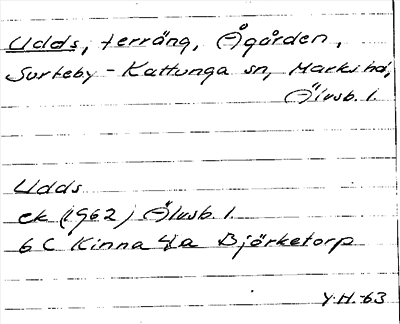 Udds, terräng, Ågården,
Surteby-Kattunga sn, Marks hd,
Älvsb. l.
Udds
ek (1962) Älvsb. l.
6 C Kinna 4a Björketorp
Y.H.-63